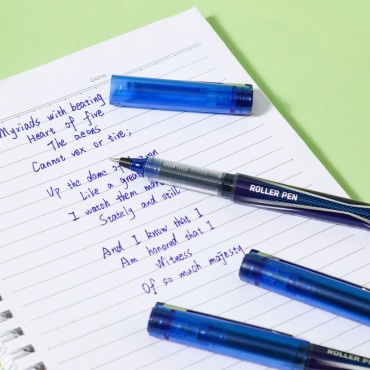 Date
Myriads with beating
Heart of five
The aeons
Cannot vex or tire;
Up the dome of
Like a great
I watch them
Stately and still.
And I know that I
Am honored that I
Witness
Of so much majesty.
ROLLER PEN
ROLLER PE